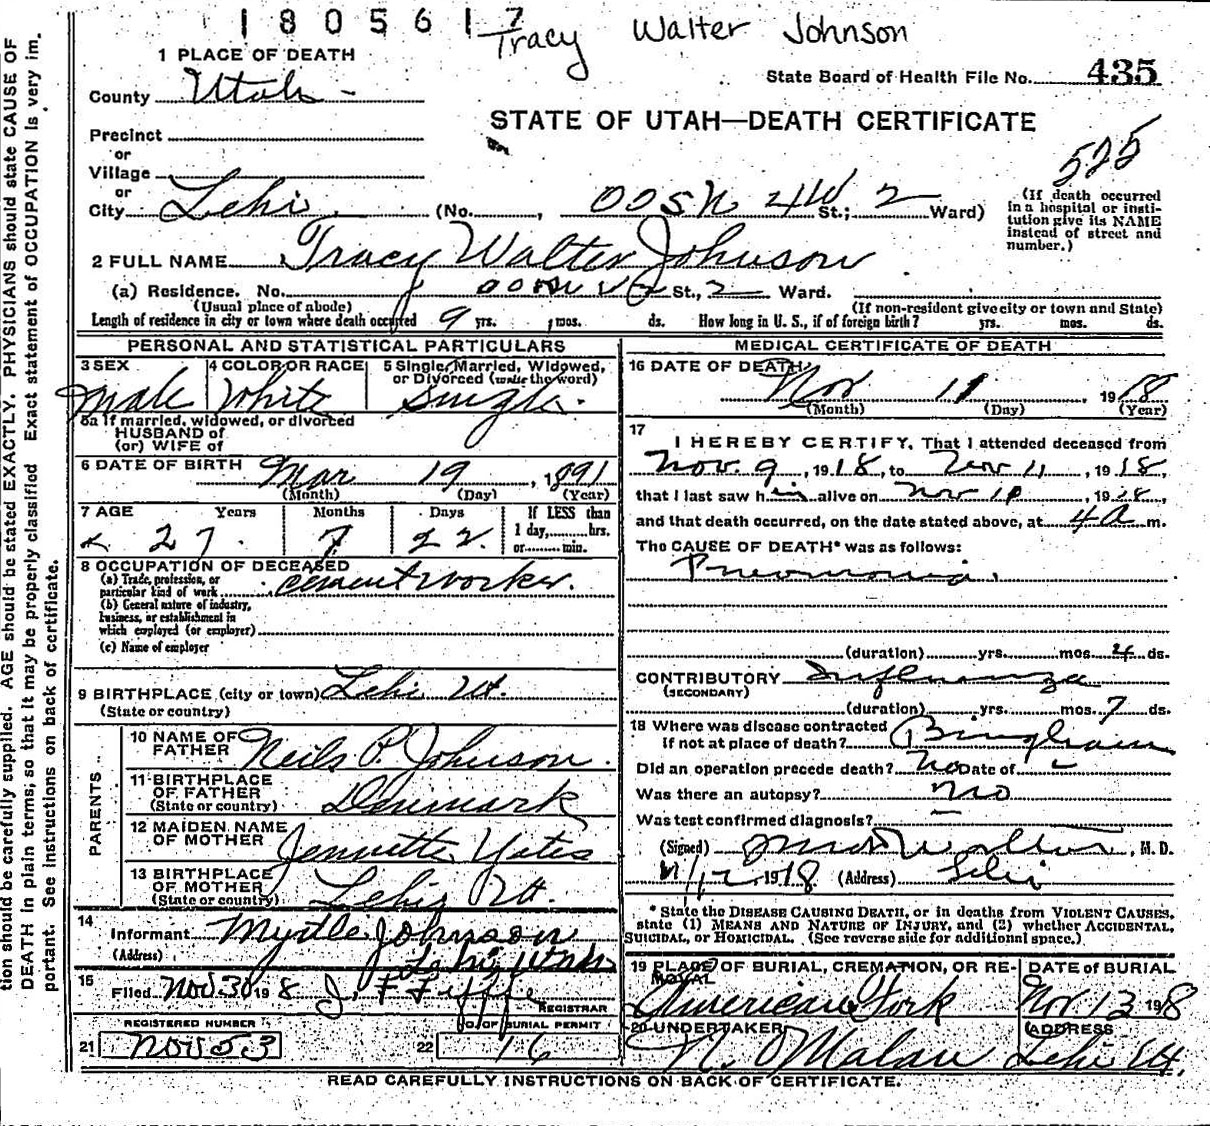 1805617
Tracy Walter Johnson
1 PLACE OF DEATH
State Board of Health File No. 435
County Utah
STATE OF UTAH—DEATH CERTIFICATE
Precinct
or
525
Village
or
City Lehi (No. , St.; 2 Ward)
(If death occurred in a hospital or insti-
tution give its NAME
instead of street and
number.)
2 FULL NAME Tracy Walter Johnson
(a) Residence. No. St., 2 Ward.
(Usual place of abode) (If non-resident give city or town and State)
Length of residence in city or town where death occurred 9 yrs. mos. ds. How long in U. S., if of foreign birth? yrs. mos. ds.
PERSONAL AND STATISTICAL PARTICULARS
3 SEX 4 COLOR OR RACE 5 Single, Married, Widowed,
or Divorced (write the word)
Male White Single.
5a If married, widowed, or divorced
HUSBAND of
(or) WIFE of
6 DATE OF BIRTH Mar 19, 1891
(Month) (Day) (Year)
7 AGE Years Months Days If LESS than
1 day, hrs.
or min.
27 7 22
8 OCCUPATION OF DECEASED
(a) Trade, profession, or
particular kind of work cement worker.
(b) General nature of industry,
business, or establishment in
which employed (or employer)
(c) Name of employer
9 BIRTHPLACE (city or town) Lehi Ut.
(State or country)
PARENTS
10 NAME OF
FATHER Neils P. Johnson.
11 BIRTHPLACE
OF FATHER
(State or country) Denmark
12 MAIDEN NAME
OF MOTHER Jennette Yates
13 BIRTHPLACE
OF MOTHER
(State or country) Lehi Ut.
14
Informant Myrtle Johnson
(Address) Lehi Utah
15
Filed Nov 30 1918 J. F
REGISTRAR
REGISTERED NUMBER NO. OF BURIAL PERMIT
21 Nov 53 22 16
MEDICAL CERTIFICATE OF DEATH
16 DATE OF DEATH
Nov 11, 1918
(Month) (Day) (Year)
17
I HEREBY CERTIFY, That I attended deceased from
Nov. 9, 1918, to Nov 11, 1918,
that I last saw him alive on Nov 10, 1918,
and that death occurred, on the date stated above, at 4 a m.
The CAUSE OF DEATH* was as follows:
Pneumonia.
(duration) yrs. mos. 4 ds.
CONTRIBUTORY Influenza
(SECONDARY)
(duration) yrs. mos. 7 ds.
18 Where was disease contracted
if not at place of death? Bingham
Did an operation precede death? No Date of
Was there an autopsy? no
Was test confirmed diagnosis?
(Signed) , M. D.
11/12, 1918 (Address) Lehi
* State the DISEASE CAUSING DEATH, or in deaths from VIOLENT CAUSES,
state (1) MEANS AND NATURE OF INJURY, and (2) whether ACCIDENTAL,
SUICIDAL, or HOMICIDAL. (See reverse side for additional space.)
19 PLACE OF BURIAL, CREMATION, OR RE-
MOVAL DATE OF BURIAL
American Fork Nov 13 1918
20 UNDERTAKER ADDRESS
N. O Malan Lehi Ut.
READ CAREFULLY INSTRUCTIONS ON BACK OF CERTIFICATE.
tion should be carefully supplied. AGE should be stated EXACTLY. PHYSICIANS should state CAUSE OF
DEATH in plain terms, so that it may be properly classified. Exact statement of OCCUPATION is very im-
portant. See instructions on back of certificate.